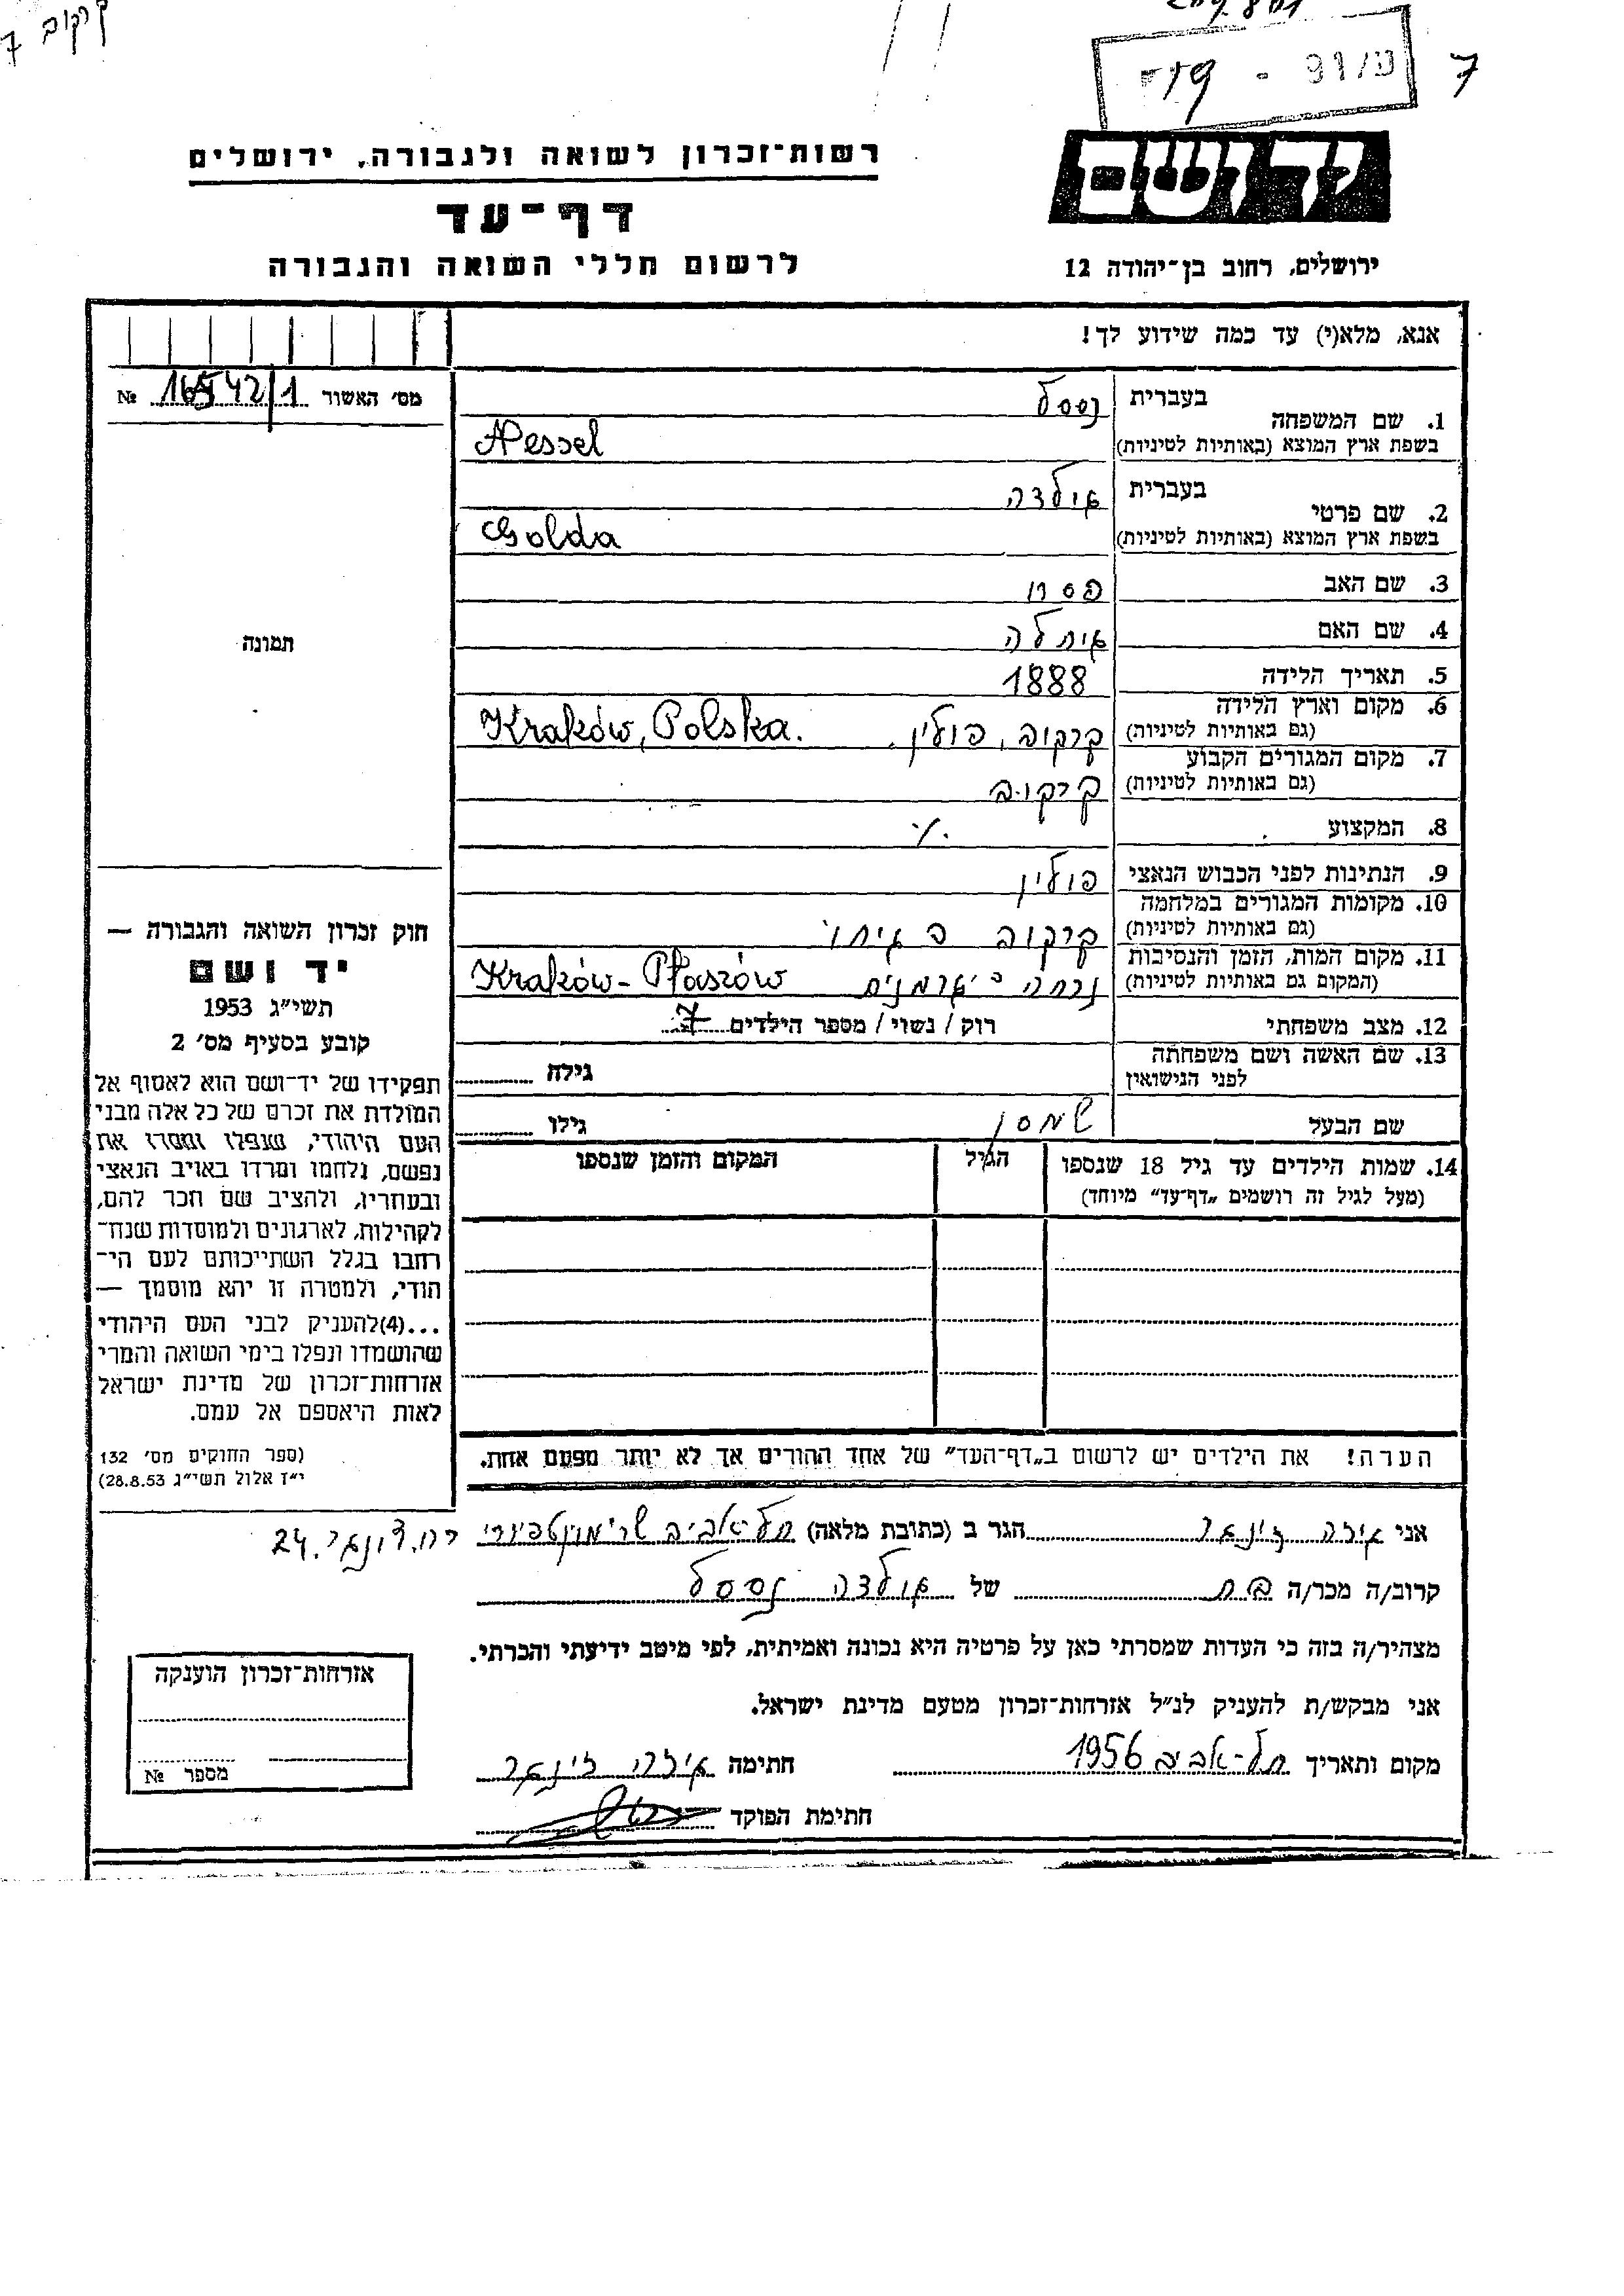 קרקוב 7
7
רשות־זכרון לשואה ולגבורה, ירושלים
דף־עד
לרשום חללי השואה והגבורה
יד ושם
ירושלים, רחוב בן־יהודה 12
אנא, מלא(י) עד כמה שידוע לך!
מס׳ האשור № 16542/1
1. שם המשפחה
בעברית נסטל
בשפת ארץ המוצא (באותיות לטיניות) Nessel
2. שם פרטי
בעברית
בשפת ארץ המוצא (באותיות לטיניות) Golda
3. שם האב פסח
4. שם האם
5. תאריך הלידה 1888
6. מקום וארץ הלידה
(גם באותיות לטיניות) קרקוב, פולין. Kraków, Polska.
7. מקום המגורים הקבוע
(גם באותיות לטיניות) קרקוב
8. המקצוע
9. הנתינות לפני הכבוש הנאצי פולין
10. מקומות המגורים במלחמה
(גם באותיות לטיניות) קרקוב
11. מקום המות, הזמן והנסיבות
(המקום גם באותיות לטיניות) Kraków-Płaszów
12. מצב משפחתי רוק / נשוי / מספר הילדים 7
13. שם האשה ושם משפחתה
לפני הנישואין
גילה
שם הבעל שמסון גילו
14. שמות הילדים עד גיל 18 שנספו
(מעל לגיל זה רושמים „דף־עד״ מיוחד)
הגיל
המקום והזמן שנספו
הערה! את הילדים יש לרשום ב„דף־העד״ של אחד ההורים אך לא יותר מפעם אחת.
תמונה
חוק זכרון השואה והגבורה —
יד ושם
תשי״ג 1953
קובע בסעיף מס׳ 2
תפקידו של יד־ושם הוא לאסוף אל
המולדת את זכרם של כל אלה מבני
העם היהודי, שנפלו ומסרו את
נפשם, נלחמו ומרדו באויב הנאצי
ובעוזריו, ולהציב שם וזכר להם,
לקהילות, לארגונים ולמוסדות שנח־
רחבו בגלל השתייכותם לעם הי־
הודי, ולמטרה זו יהא מוסמך —
...(4)להעניק לבני העם היהודי
שהושמדו ונפלו בימי השואה והמרי
אזרחות־זכרון של מדינת ישראל
לאות היאספם אל עמם.
(ספר החוקים מס׳ 132
י״ז אלול תשי״ג 28.8.53)
אני הגר ב (כתובת מלאה) תל־אביב 24
קרוב/ה מכר/ה בת של גולדה נסל
מצהיר/ה בזה כי העדות שמסרתי כאן על פרטיה היא נכונה ואמיתית, לפי מיטב ידיעתי והכרתי.
אני מבקש/ת להעניק לנ״ל אזרחות־זכרון מטעם מדינת ישראל.
מקום ותאריך תל־אביב 1956 חתימה
חתימת הפוקד
אזרחות־זכרון הוענקה
מספר №